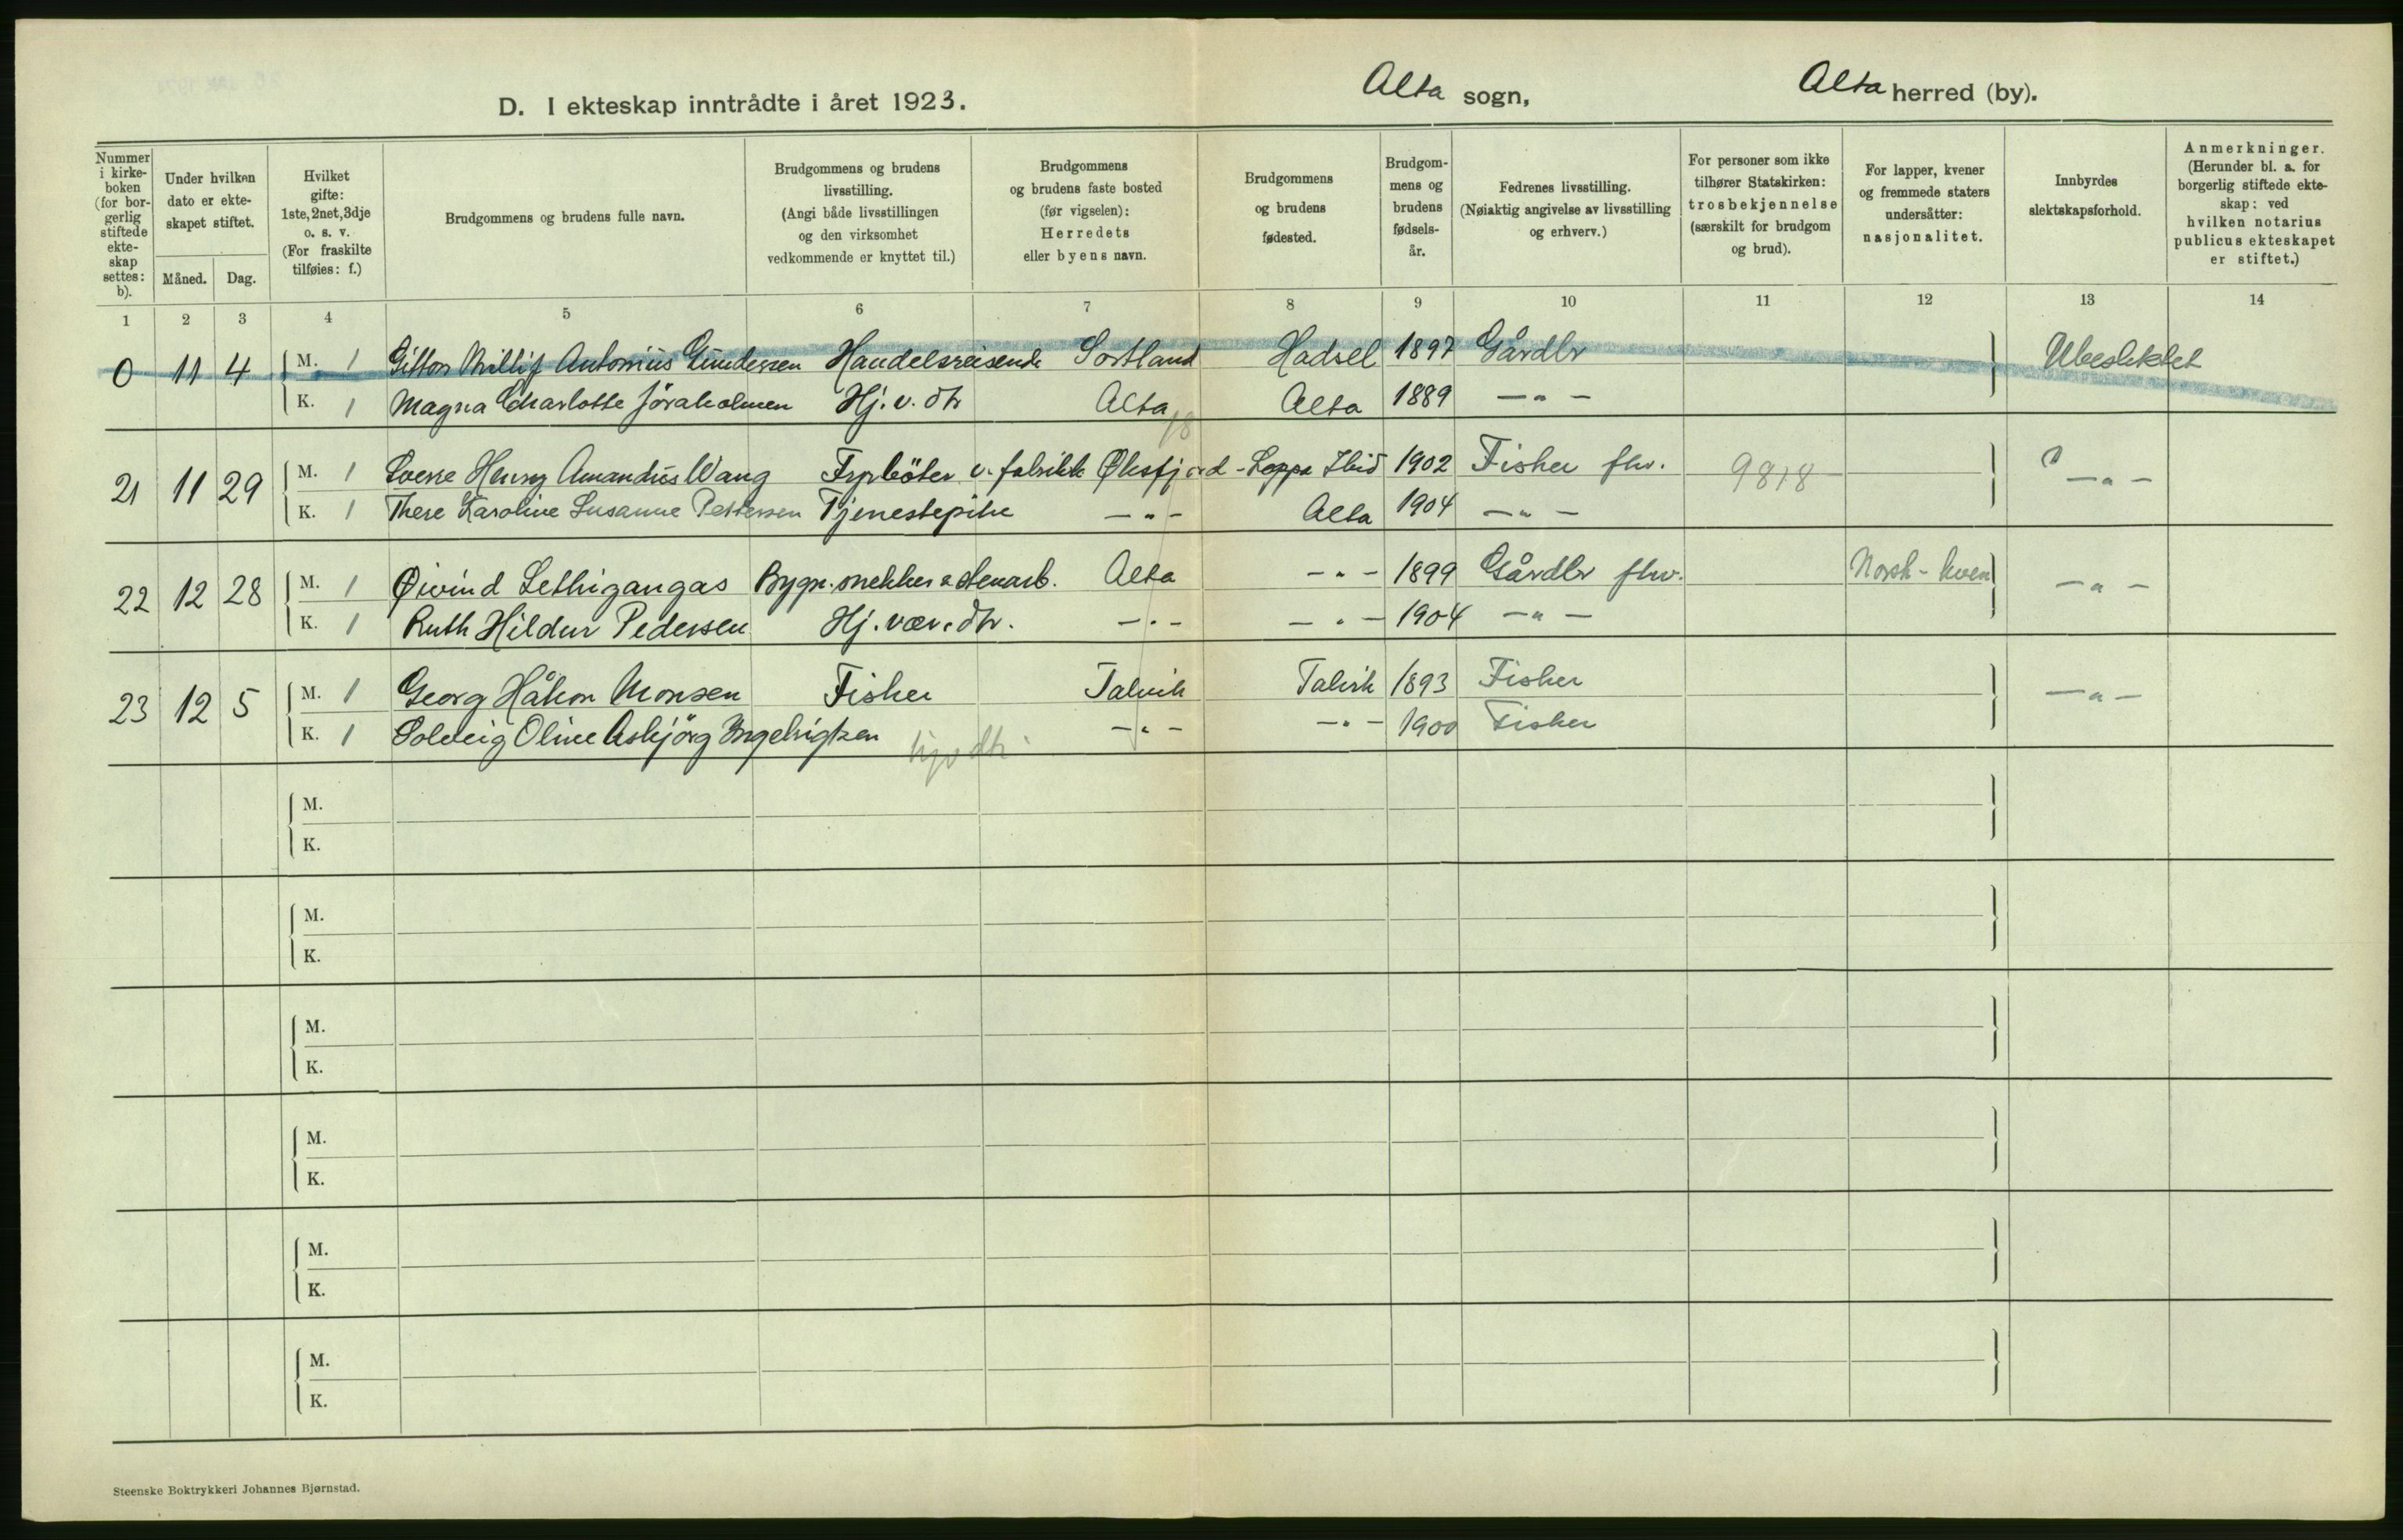 D. I ekteskap inntrådte i året 1923.
Alta sogn,
Alta herred (by).
Nummer i kirke- boken (for bor- gerlig stiftede ekte- skap settes: b).
Under hvilken dato er ekte- skapet stiftet.
Måned.
Dag.
Hvilket gifte: 1ste, 2net, 3dje o. s. v. (For fraskilte tilføies: f.)
Brudgommens og brudens fulle navn.
Brudgommens og brudens livsstilling. (Angi både livsstillingen og den virksomhet vedkommende er knyttet til.)
Brudgommens og brudens faste bosted (før vigselen): Herredets eller byens navn.
Brudgommens og brudens fødested.
Brudgom- mens og brudens fødsels- år.
Fedrenes livsstilling. (Nøiaktig angivelse av livsstilling og erhverv.)
For personer som ikke tilhører Statskirken: trosbekjennelse (særskilt for brudgom og brud).
For lapper, kvener og fremmede staters undersåtter: nasjonalitet.
Innbyrdes slektskapsforhold.
Anmerkninger. (Herunder bl. a. for borgerlig stiftede ekte- skap: ved hvilken notarius publicus ekteskapet er stiftet.)
1 2 3 4 5 6 7 8 9 10 11 12 13 14
0 11 4 M. 1 Antonius Gundersen Handelsreisende Sortland Hadsel 1897 Gårdbr Ubeslektet
K. 1 Magna Charlotte Jöraholmen Hj. v. dtr Alta Alta 1889 — " —
21 11 29 M. 1 Sverre Henry Amandus Wang Fyrböter v. fabrikk Øksfjord - Loppa Ibid 1902 Fisker fhv. 9818 — " —
K. 1 There Karoline Susanne Pettersen Tjenestepike — " — Alta 1904 — " —
22 12 28 M. 1 Øivind Lethigangas Bygn. snekker & stenarb. Alta — " — 1899 Gårdbr fhv. Norsk - kven — " —
K. 1 Ruth Hildur Pedersen Hj. vær. dtr. — " — — " — 1904 — " —
23 12 5 M. 1 Georg Håkon Monsen Fisker Talvik Talvik 1893 Fisker — " —
K. 1 Solveig Oline Asbjörg Ingebrigtsen hjv dtr — " — — " — 1900 Fisker
M.
K.
M.
K.
M.
K.
M.
K.
M.
K.
M.
K.
Steenske Boktrykkeri Johannes Bjørnstad.